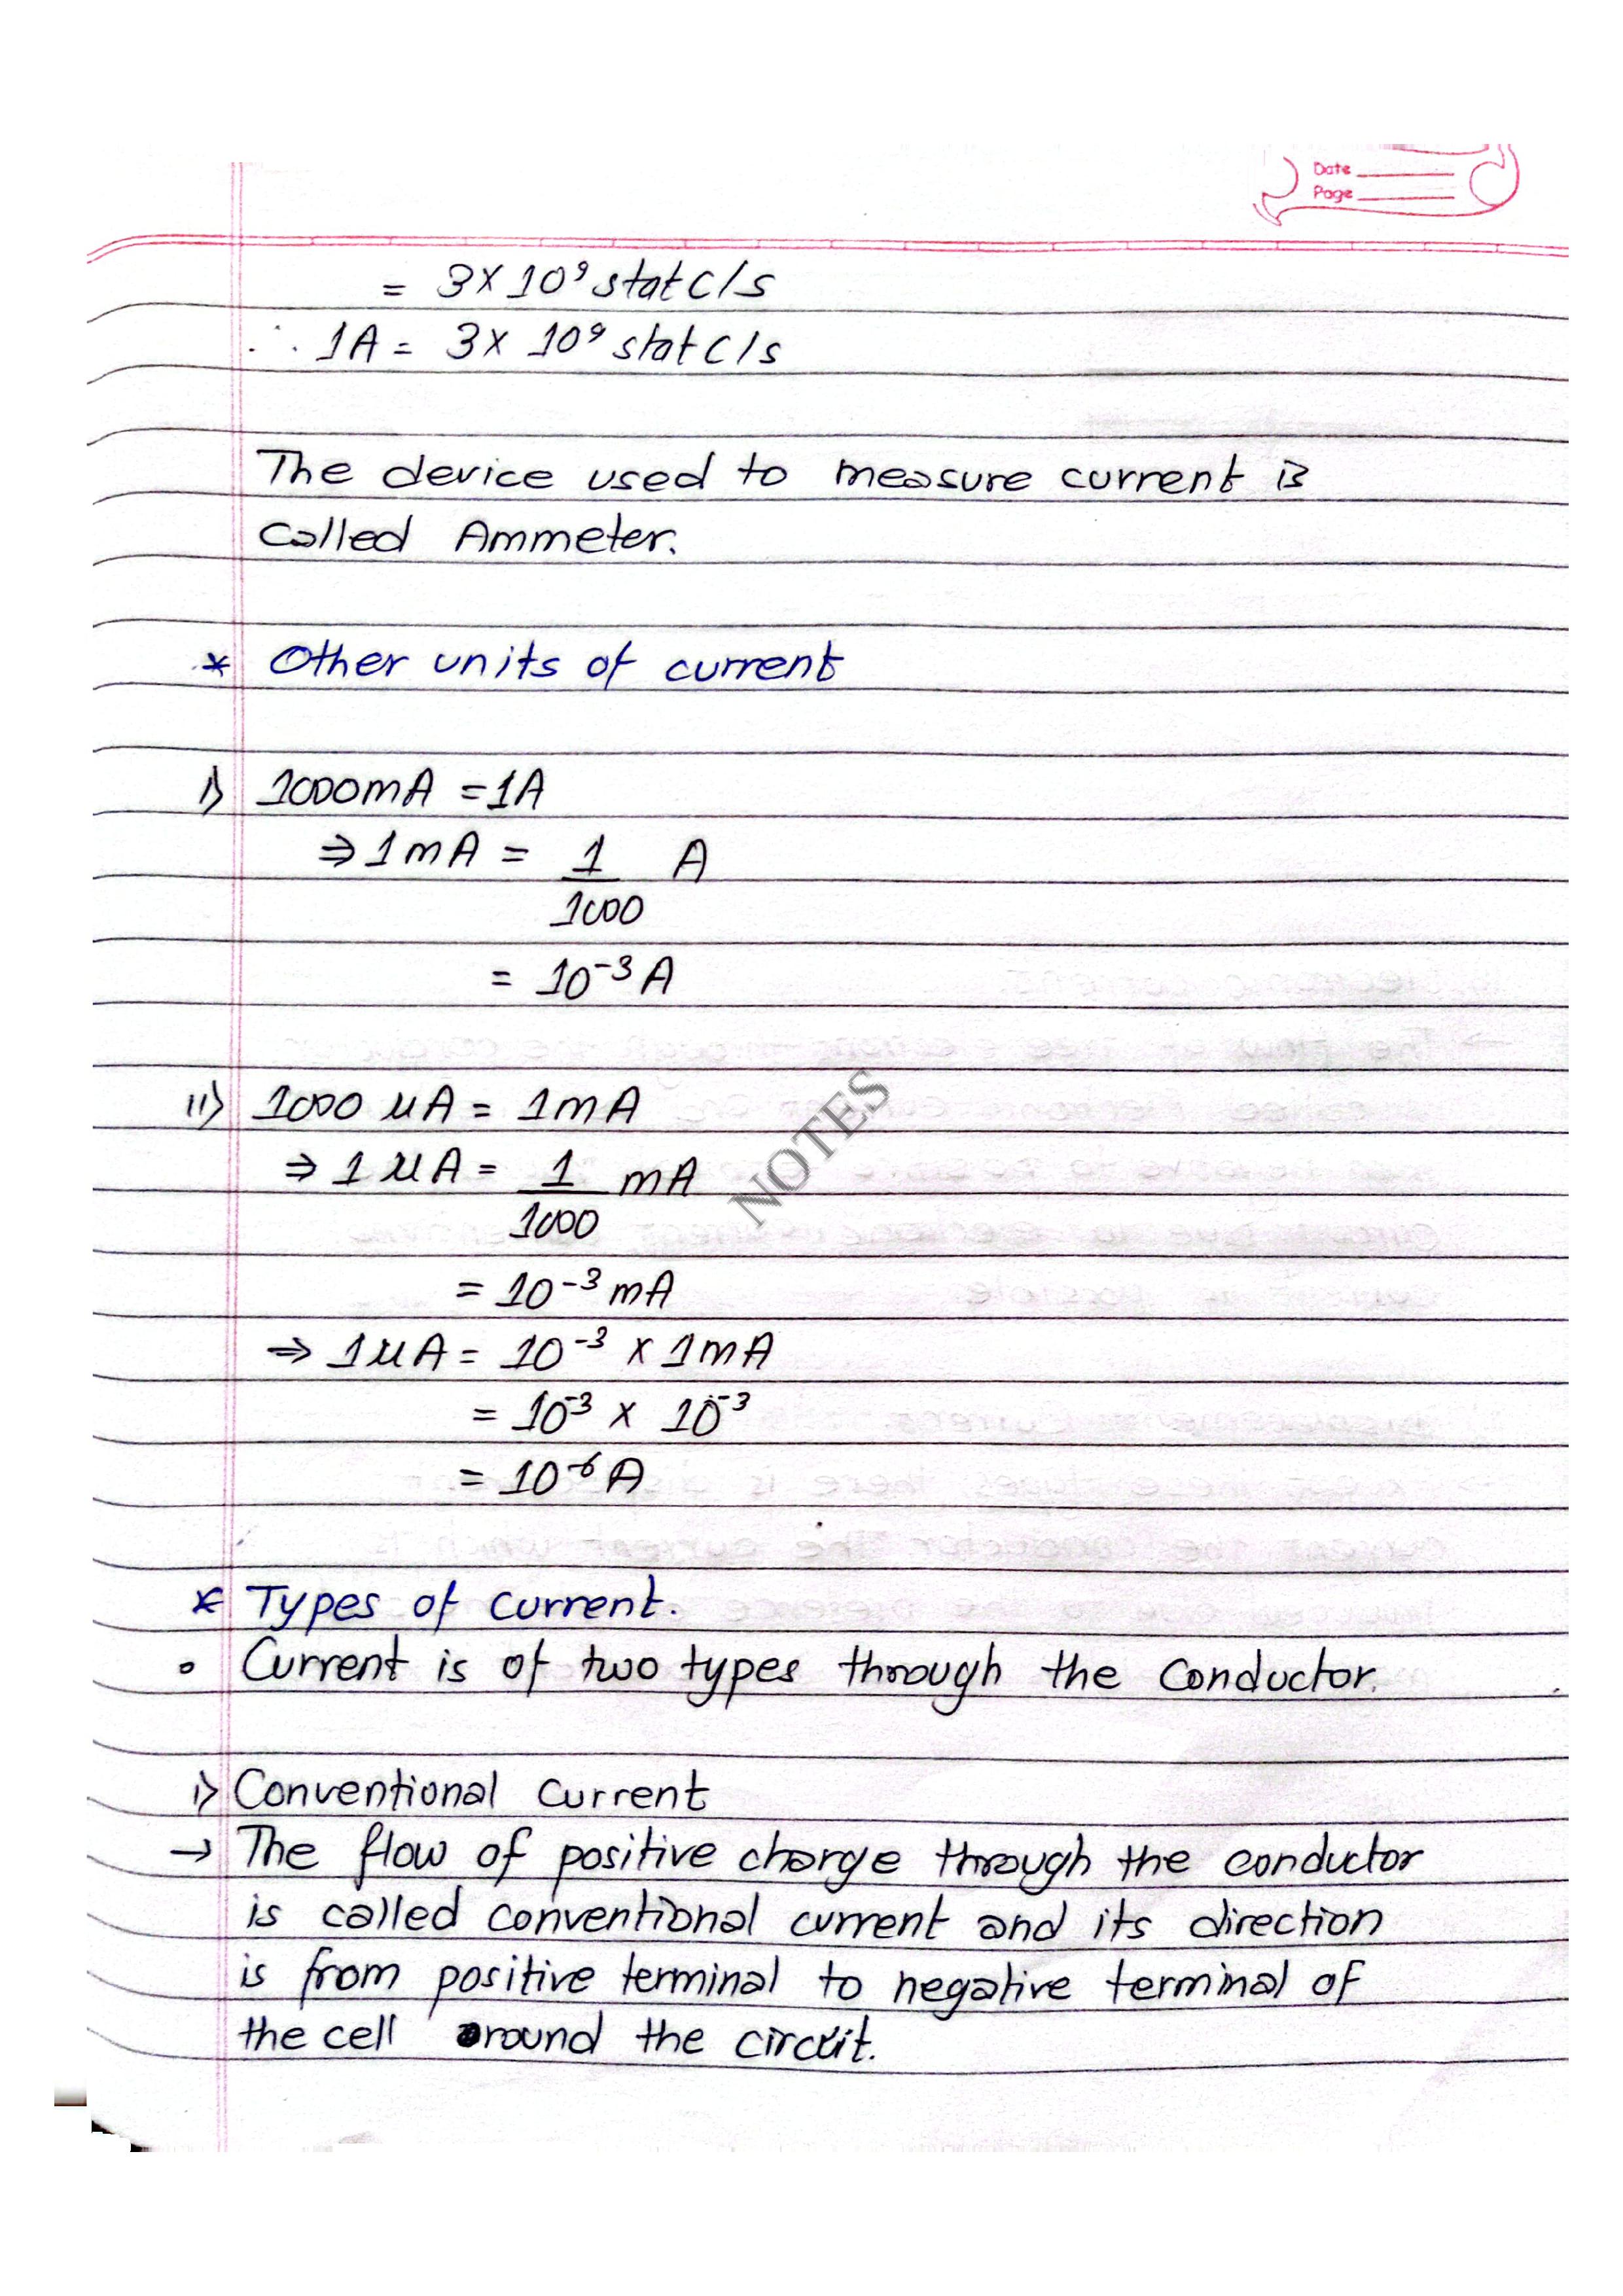 Date
Page
= 3 × 10⁹ stat C/s
∴ 1A = 3 × 10⁹ stat C/s
The device used to measure current is
called Ammeter.
* Other units of current
i) 1000mA = 1A
⇒ 1mA = 1/1000 A
= 10⁻³ A
ii) 1000 μA = 1mA
⇒ 1 μA = 1/1000 mA
= 10⁻³ mA
⇒ 1μA = 10⁻³ × 1mA
= 10⁻³ × 10⁻³
= 10⁻⁶ A
NOTES
* Types of current.
• Current is of two types through the conductor.
i) Conventional Current
→ The flow of positive charge through the conductor
is called conventional current and its direction
is from positive terminal to negative terminal of
the cell around the circuit.